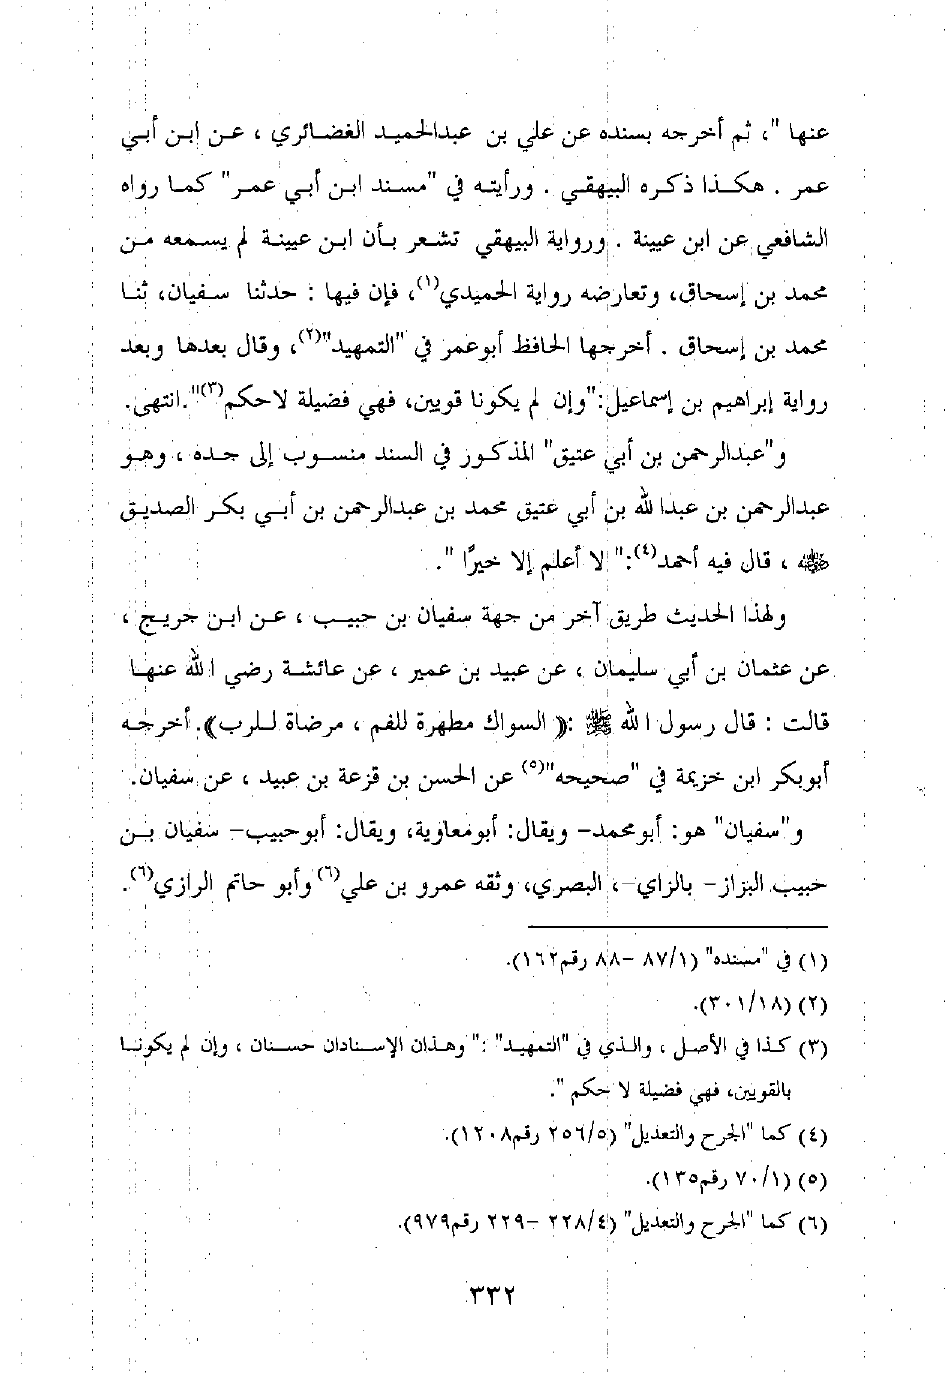 عنها "، ثم أخرجه بسنده عن علي بن عبدالحميد الغضائري ، عن ابن أبي
عمر . هكذا ذكره البيهقي . ورأيته في "مسند ابن أبي عمر" كما رواه
الشافعي عن ابن عيينة . ورواية البيهقي تشعر بأن ابن عيينة لم يسمعه من
محمد بن إسحاق، وتعارضه رواية الحميدي(١)، فإن فيها : حدثنا سفيان، ثنا
محمد بن إسحاق . أخرجها الحافظ أبوعمر في "التمهيد"(٢)، وقال بعدها وبعد
رواية إبراهيم بن إسماعيل:"وإن لم يكونا قويين، فهي فضيلة لاحكم(٣)".انتهى.
و"عبدالرحمن بن أبي عتيق" المذكور في السند منسوب إلى جده ، وهو
عبدالرحمن بن عبدالله بن أبي عتيق محمد بن عبدالرحمن بن أبي بكر الصديق
ﷺ ، قال فيه أحمد(٤):" لا أعلم إلا خيرًا ".
ولهذا الحديث طريق آخر من جهة سفيان بن حبيب ، عن ابن جريج ،
عن عثمان بن أبي سليمان ، عن عبيد بن عمير ، عن عائشة رضي الله عنها
قالت : قال رسول الله ﷺ :﴿ السواك مطهرة للفم ، مرضاة للرب﴾. أخرجه
أبوبكر ابن خزيمة في "صحيحه"(٥) عن الحسن بن قزعة بن عبيد ، عن سفيان.
و"سفيان" هو: أبومحمد- ويقال: أبومعاوية، ويقال: أبوحبيب- سفيان بن
حبيب البزاز- بالزاي-، البصري، وثقه عمرو بن علي(٦) وأبو حاتم الرازي(٦).
(١) في "مسنده" (٨٧/١ -٨٨ رقم١٦٢).
(٢) (٣٠١/١٨).
(٣) كذا في الأصل ، والذي في "التمهيد" :" وهذان الإسنادان حسنان ، وإن لم يكونا
بالقويين، فهي فضيلة لا حكم ".
(٤) كما "الجرح والتعديل" (٢٥٦/٥ رقم١٢٠٨).
(٥) (٧٠/١ رقم١٣٥).
(٦) كما "الجرح والتعديل" (٢٢٨/٤ -٢٢٩ رقم٩٧٩).
٣٣٢